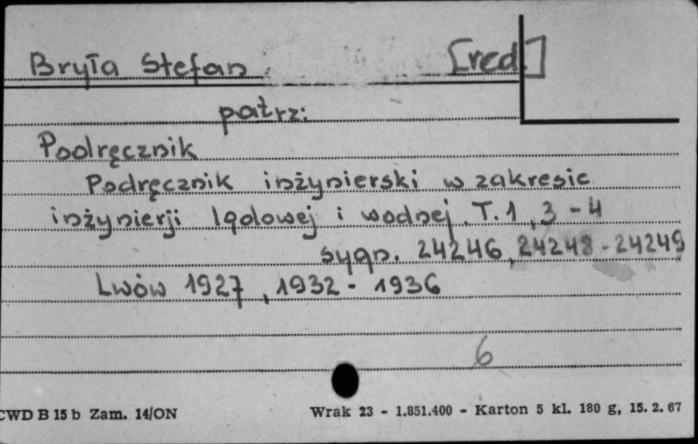 Bryła Stefan [red.]
patrz:
Podręcznik
Podręcznik inżynierski w zakresie
inżynierji lądowej i wodnej. T.1, 3-4
sygn. 24246, 24248-24249
Lwów 1927, 1932-1936
6
CWD B 15 b Zam. 14/ON Wrak 23 - 1.851.400 - Karton 5 kl. 180 g, 15. 2. 67